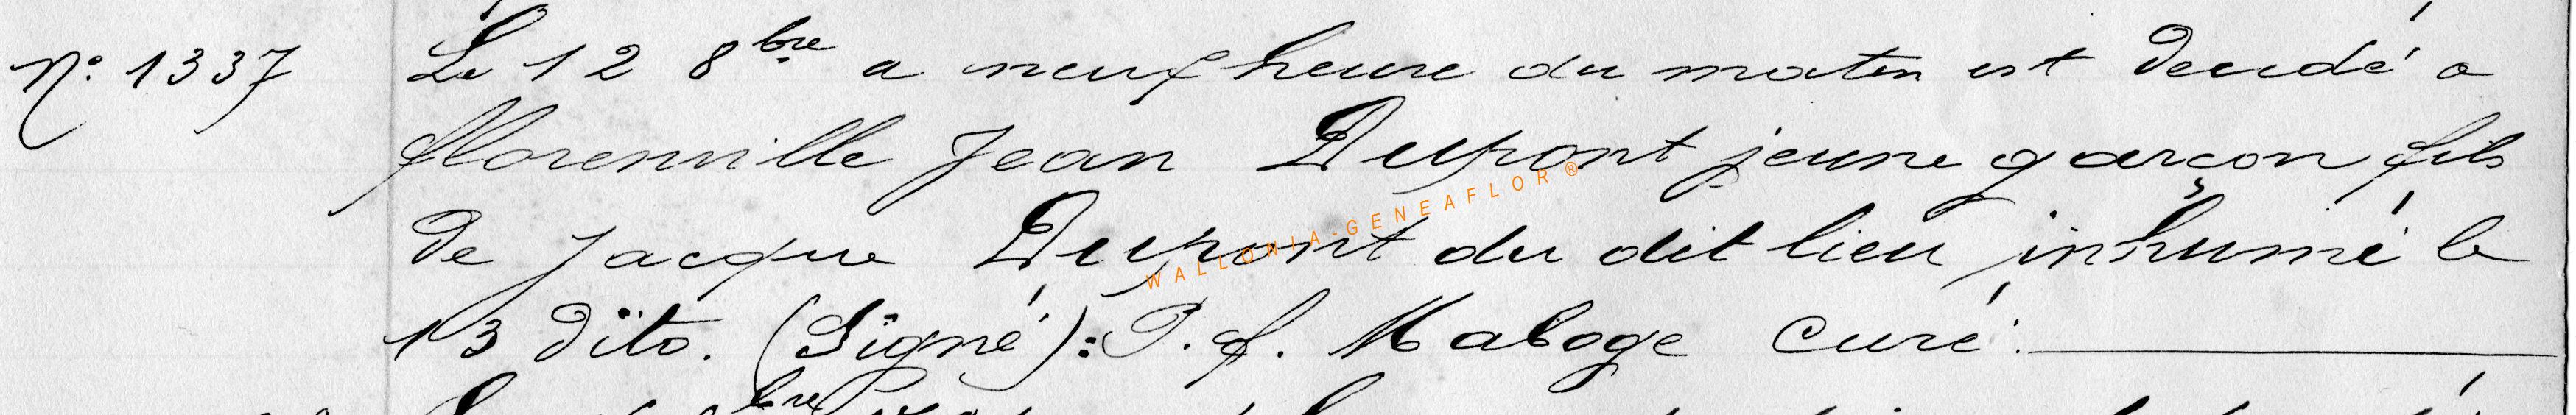 N° 1337 Le 12 8bre a neuf heure du matin est décédé a
florenville Jean Dupont jeune garçon fils
de Jacque Dupont du dit lieu inhumé le
13 dito. (Signé): P. f. Maloge Curé.
WALLONIA-GENEAFLOR®